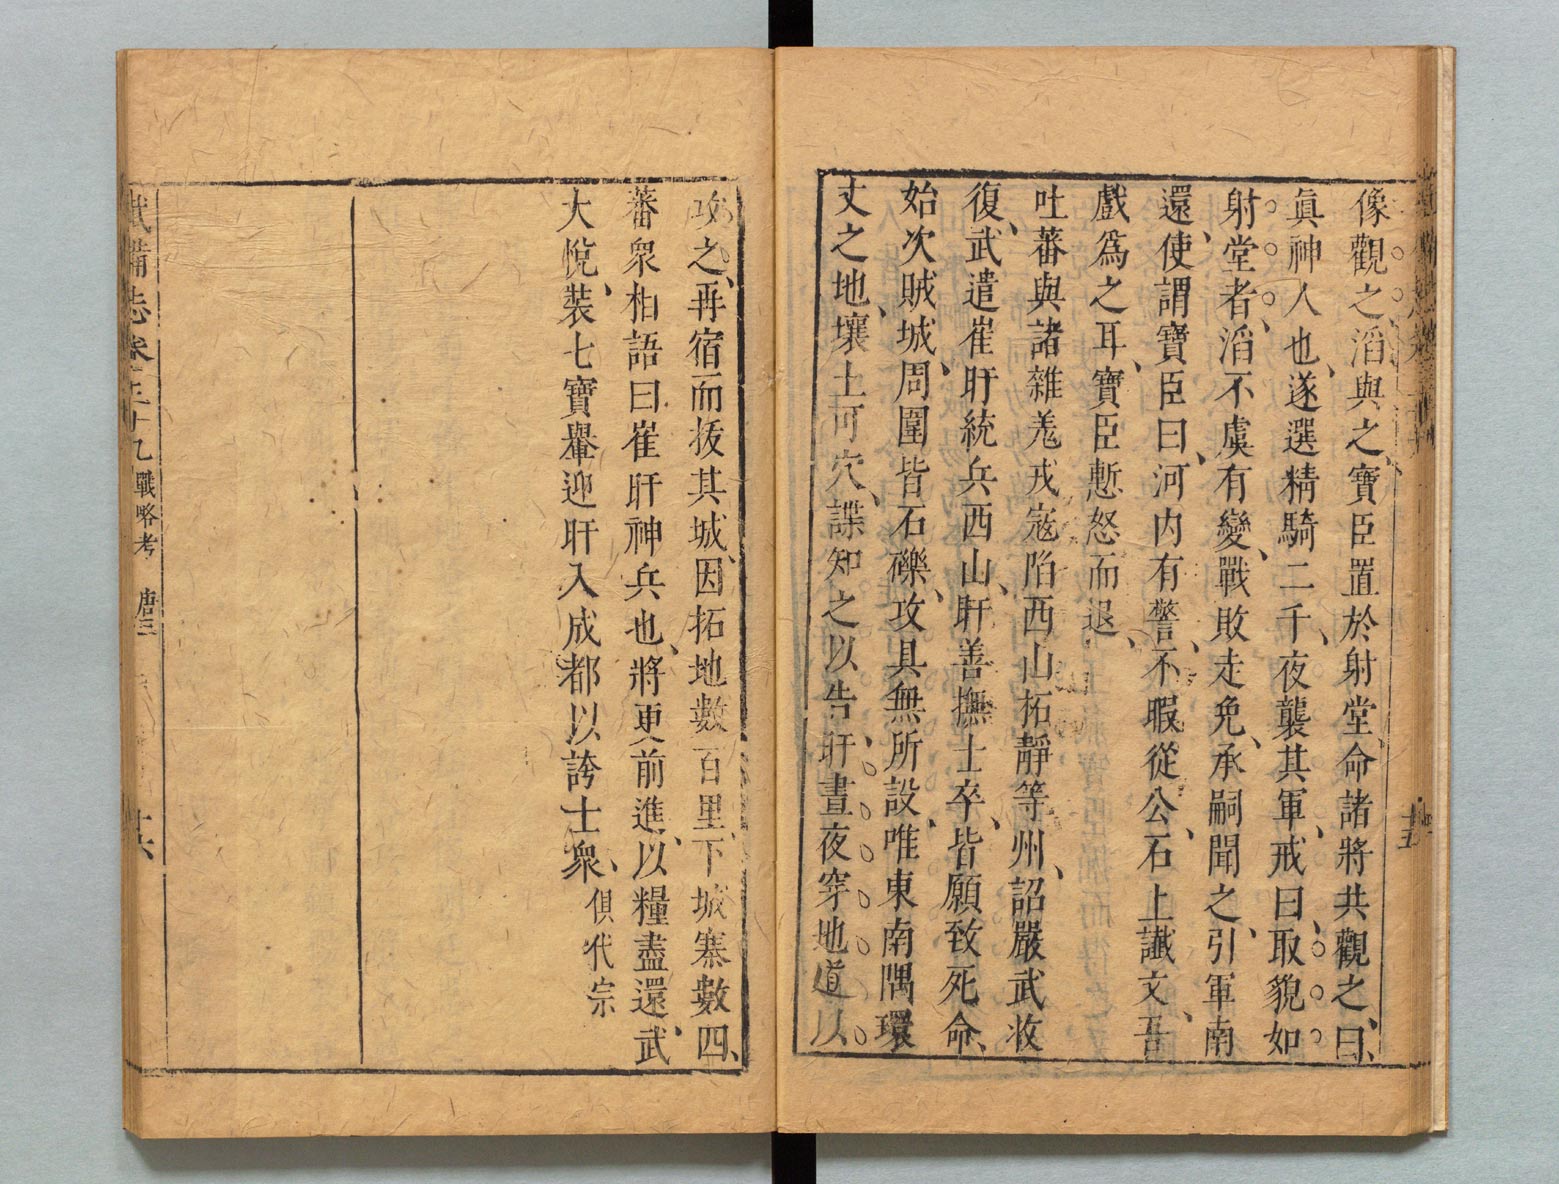 像觀之滔與之、寶臣置於射堂、命諸將共觀之、曰、
眞神人也、遂選精騎二千、夜襲其軍、戒曰、取貌如
射堂者、滔不虞有變、戰敗走免、承嗣聞之、引軍南
還、使謂寶臣曰、河内有警、不暇從公、石上讖文、吾
戲爲之耳、寶臣慙怒而退、
吐蕃與諸雜羗戎寇陷西山拓靜等州、詔嚴武收
復、武遣崔旰統兵西山、旰善撫士卒、皆願致死命、
始次賊城、周圍皆石礫、攻具無所設、唯東南隅環
丈之地、壤土可穴、諜知之以告、旰晝夜穿地道以
攻之、再宿而拔其城、因拓地數百里、下城寨數四、
蕃衆相語曰崔旰神兵也、將更前進、以糧盡還、武
大悅、裝七寶轝迎旰入成都以誇士衆、俱代宗
武備志卷三十九 戰略考 唐三 十六
十五